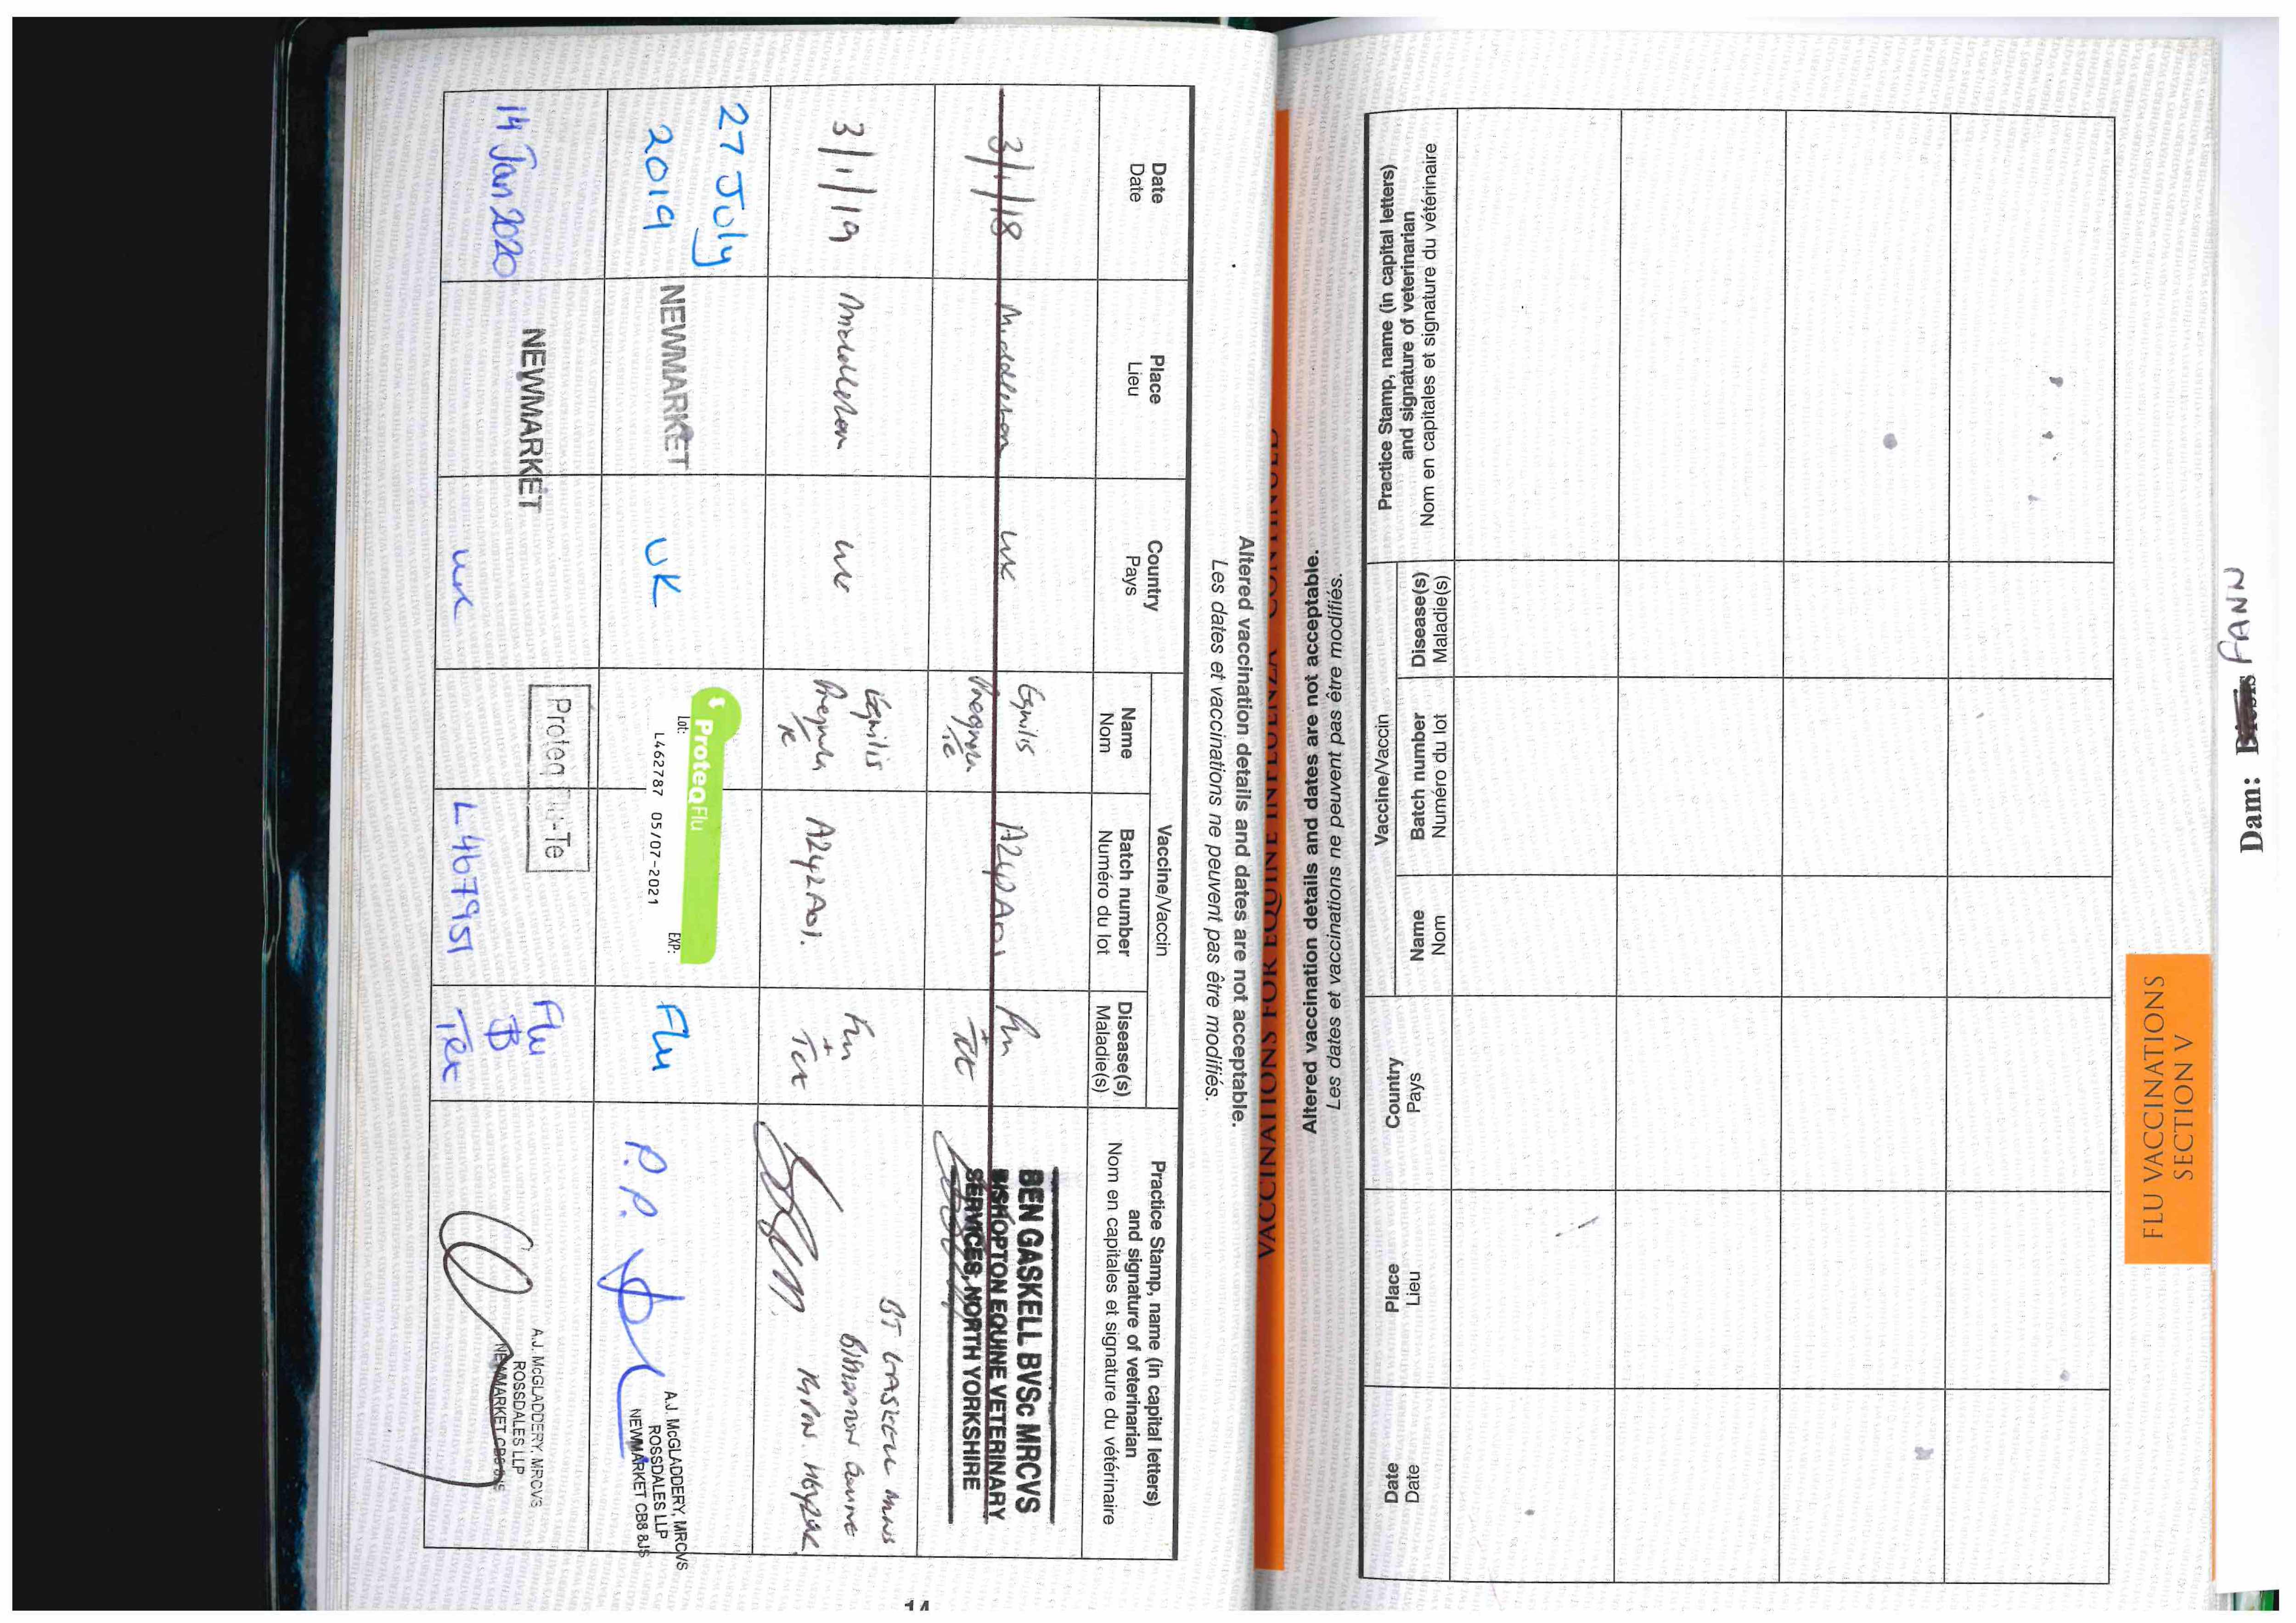 VACCINATIONS FOR EQUINE INFLUENZA
Altered vaccination details and dates are not acceptable.
Les dates et vaccinations ne peuvent pas être modifiés.
Date
Date
Place
Lieu
Country
Pays
Vaccine/Vaccin
Name
Nom
Batch number
Numéro du lot
Disease(s)
Maladie(s)
Practice Stamp, name (in capital letters)
and signature of veterinarian
Nom en capitales et signature du vétérinaire
3/1/18
UK
Equilis
BEN GASKELL BVSc MRCVS
BISHOPTON EQUINE VETERINARY
SERVICES, NORTH YORKSHIRE
3/1/19
UK
Equilis
A242A01.
Flu
+
Tet
27 July
2019
NEWMARKET
UK
ProteqFlu
Lot:
EXP:
L462787 05/07-2021
Flu
P.P.
A.J. McGLADDERY, MRCVS
ROSSDALES LLP
NEWMARKET CB8 8JS
14 Jan 2020
NEWMARKET
UK
Proteq Flu-Te
L467951
Flu
Tet
A.J. McGLADDERY, MRCVS
ROSSDALES LLP
NEWMARKET CB8 8JS
14
FLU VACCINATIONS
SECTION V
Altered vaccination details and dates are not acceptable.
Les dates et vaccinations ne peuvent pas être modifiés.
Date
Date
Place
Lieu
Country
Pays
Vaccine/Vaccin
Name
Nom
Batch number
Numéro du lot
Disease(s)
Maladie(s)
Practice Stamp, name (in capital letters)
and signature of veterinarian
Nom en capitales et signature du vétérinaire
Dam: